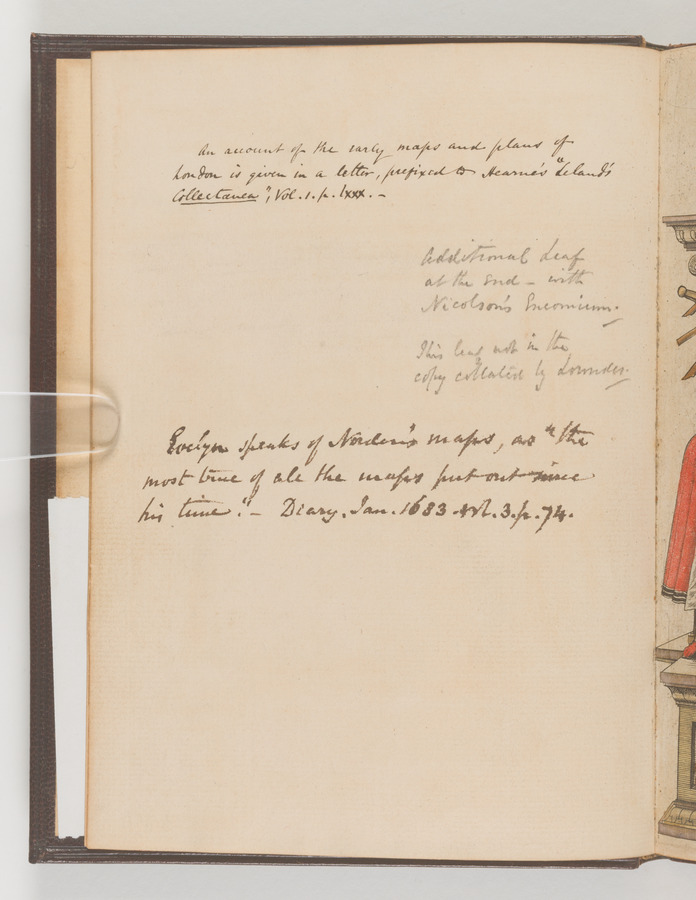 An account of the early maps and plans of
London is given in a letter, prefixed to Hearne's "Leland's
Collectanea", Vol. 1. p. lxxx. -
Additional Leaf
at the End - with
Nicolson's Encomium.
This leaf not in the
copy collated by Lowndes.
Evelyn speaks of Norden's maps, as "the
most true of all the maps put out since
his time." - Diary. Jan. 1683. vol. 3. p. 74.